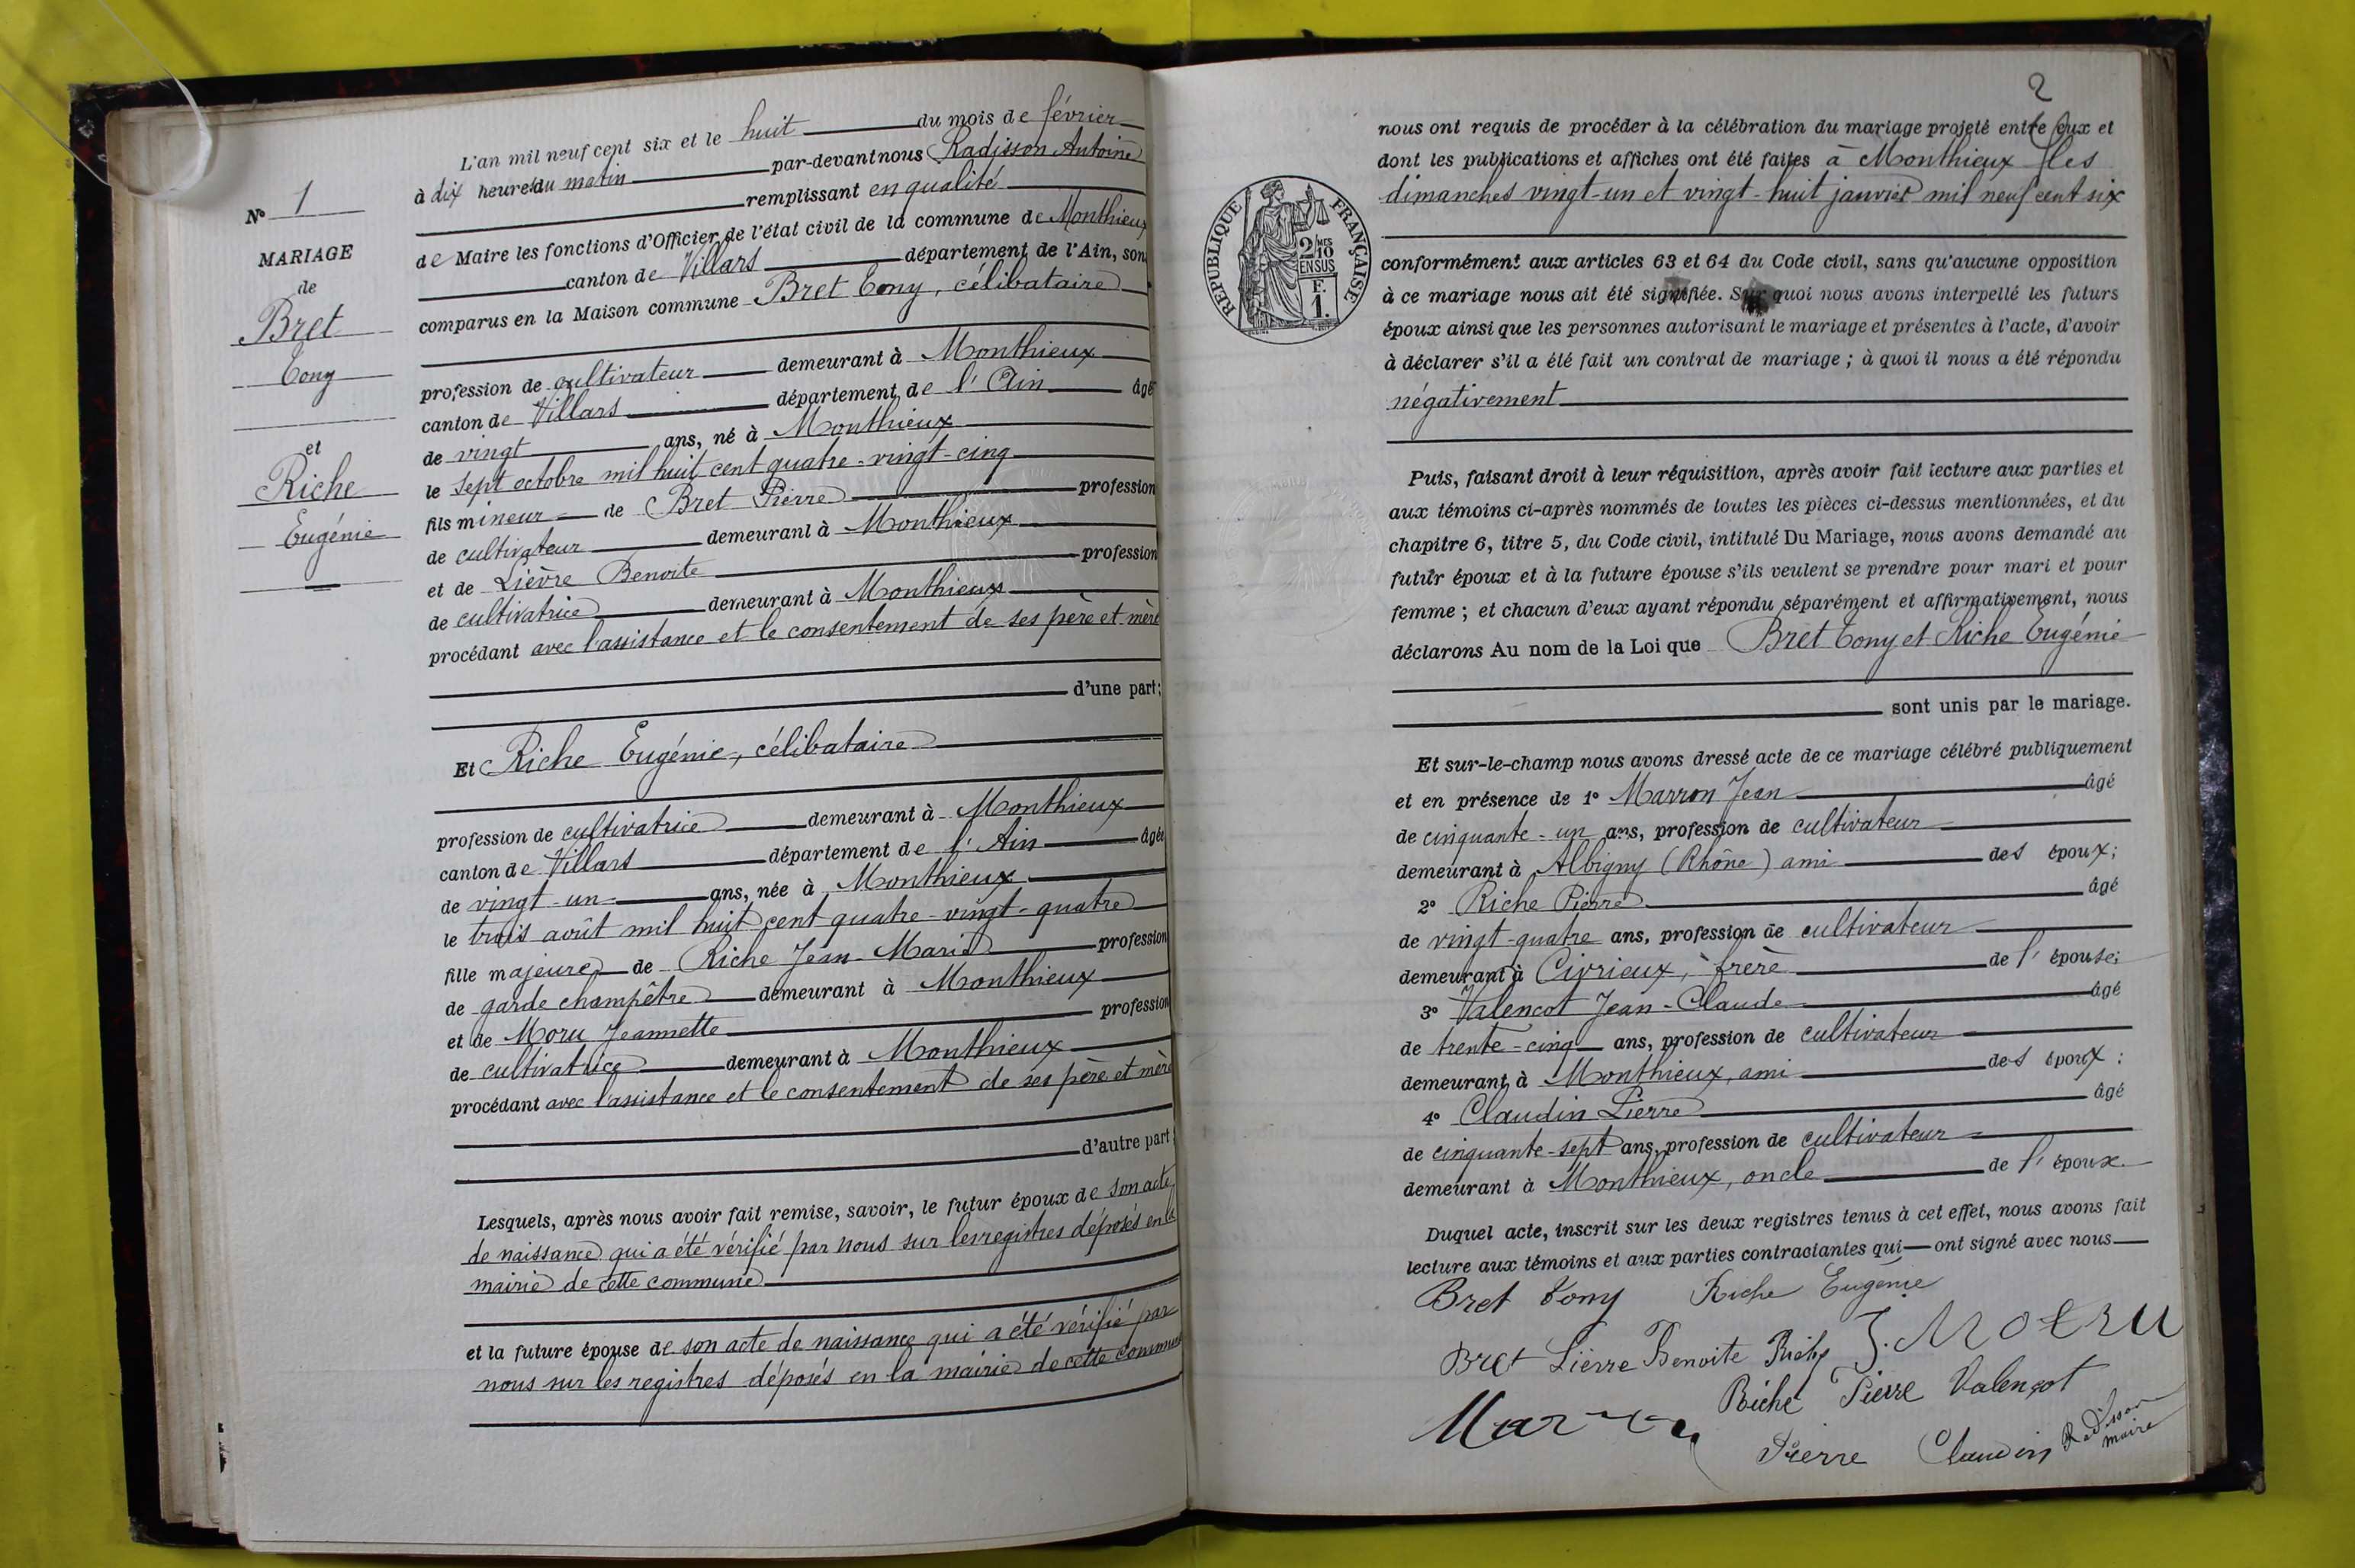 L'an mil neuf cent six et le huit du mois de février
à dix heures du matin par-devant nous Radisson Antoine
remplissant en qualité
de Maire les fonctions d'Officier de l'état civil de la commune de Monthieux
canton de Villars département de l'Ain, son
comparus en la Maison commune Bret Tony, célibataire
profession de cultivateur demeurant à Monthieux
canton de Villars département de l'Ain âgé
de vingt ans, né à Monthieux
le sept octobre mil huit cent quatre-vingt-cinq
fils mineur de Bret Pierre profession
de cultivateur demeurant à Monthieux
et de Lièvre Benoite profession
de cultivatrice demeurant à Monthieux
procédant avec l'assistance et le consentement de ses père et mère
d'une part;
Et Riche Eugénie, célibataire
profession de cultivatrice demeurant à Monthieux
canton de Villars département de l'Ain âgée
de vingt-un ans, née à Monthieux
le trois août mil huit cent quatre-vingt-quatre
fille majeure de Riche Jean-Marie profession
de garde champêtre demeurant à Monthieux
et de Moru Jeannette profession
de cultivatrice demeurant à Monthieux
procédant avec l'assistance et le consentement de ses père et mère
d'autre part;
Lesquels, après nous avoir fait remise, savoir, le futur époux de son acte
de naissance qui a été vérifié par nous sur les registres déposés en la
mairie de cette commune
et la future épouse de son acte de naissance qui a été vérifié par
nous sur les registres déposés en la mairie de cette commune
N° 1
MARIAGE
de
Bret
Tony
et
Riche
Eugénie
2
nous ont requis de procéder à la célébration du mariage projeté entre eux et
dont les publications et affiches ont été faites à Monthieux les
dimanches vingt-un et vingt-huit janvier mil neuf cent six
conformément aux articles 63 et 64 du Code civil, sans qu'aucune opposition
à ce mariage nous ait été signifiée. Sur quoi nous avons interpellé les futurs
époux ainsi que les personnes autorisant le mariage et présentes à l'acte, d'avoir
à déclarer s'il a été fait un contrat de mariage; à quoi il nous a été répondu
négativement
RÉPUBLIQUE FRANÇAISE
2/MES
10
EN SUS
F.
1.
Puis, faisant droit à leur réquisition, après avoir fait lecture aux parties et
aux témoins ci-après nommés de toutes les pièces ci-dessus mentionnées, et du
chapitre 6, titre 5, du Code civil, intitulé Du Mariage, nous avons demandé au
futur époux et à la future épouse s'ils veulent se prendre pour mari et pour
femme; et chacun d'eux ayant répondu séparément et affirmativement, nous
déclarons Au nom de la Loi que Bret Tony et Riche Eugénie
sont unis par le mariage.
Et sur-le-champ nous avons dressé acte de ce mariage célébré publiquement
et en présence de 1° Marron Jean âgé
de cinquante-un ans, profession de cultivateur
demeurant à Albigny (Rhône) ami des époux;
2° Riche Pierre âgé
de vingt-quatre ans, profession de cultivateur
demeurant à Civrieux, frère de l'épouse;
3° Valencot Jean-Claude âgé
de trente-cinq ans, profession de cultivateur
demeurant à Monthieux, ami des époux;
4° Claudin Pierre âgé
de cinquante-sept ans, profession de cultivateur
demeurant à Monthieux, oncle de l'époux.
Duquel acte, inscrit sur les deux registres tenus à cet effet, nous avons fait
lecture aux témoins et aux parties contractantes qui ont signé avec nous
Bret Tony Riche Eugénie
Bret Lièvre Benoite Riche J. Moeru
Riche Pierre Valençot
Pierre Claudin Radisson
maire